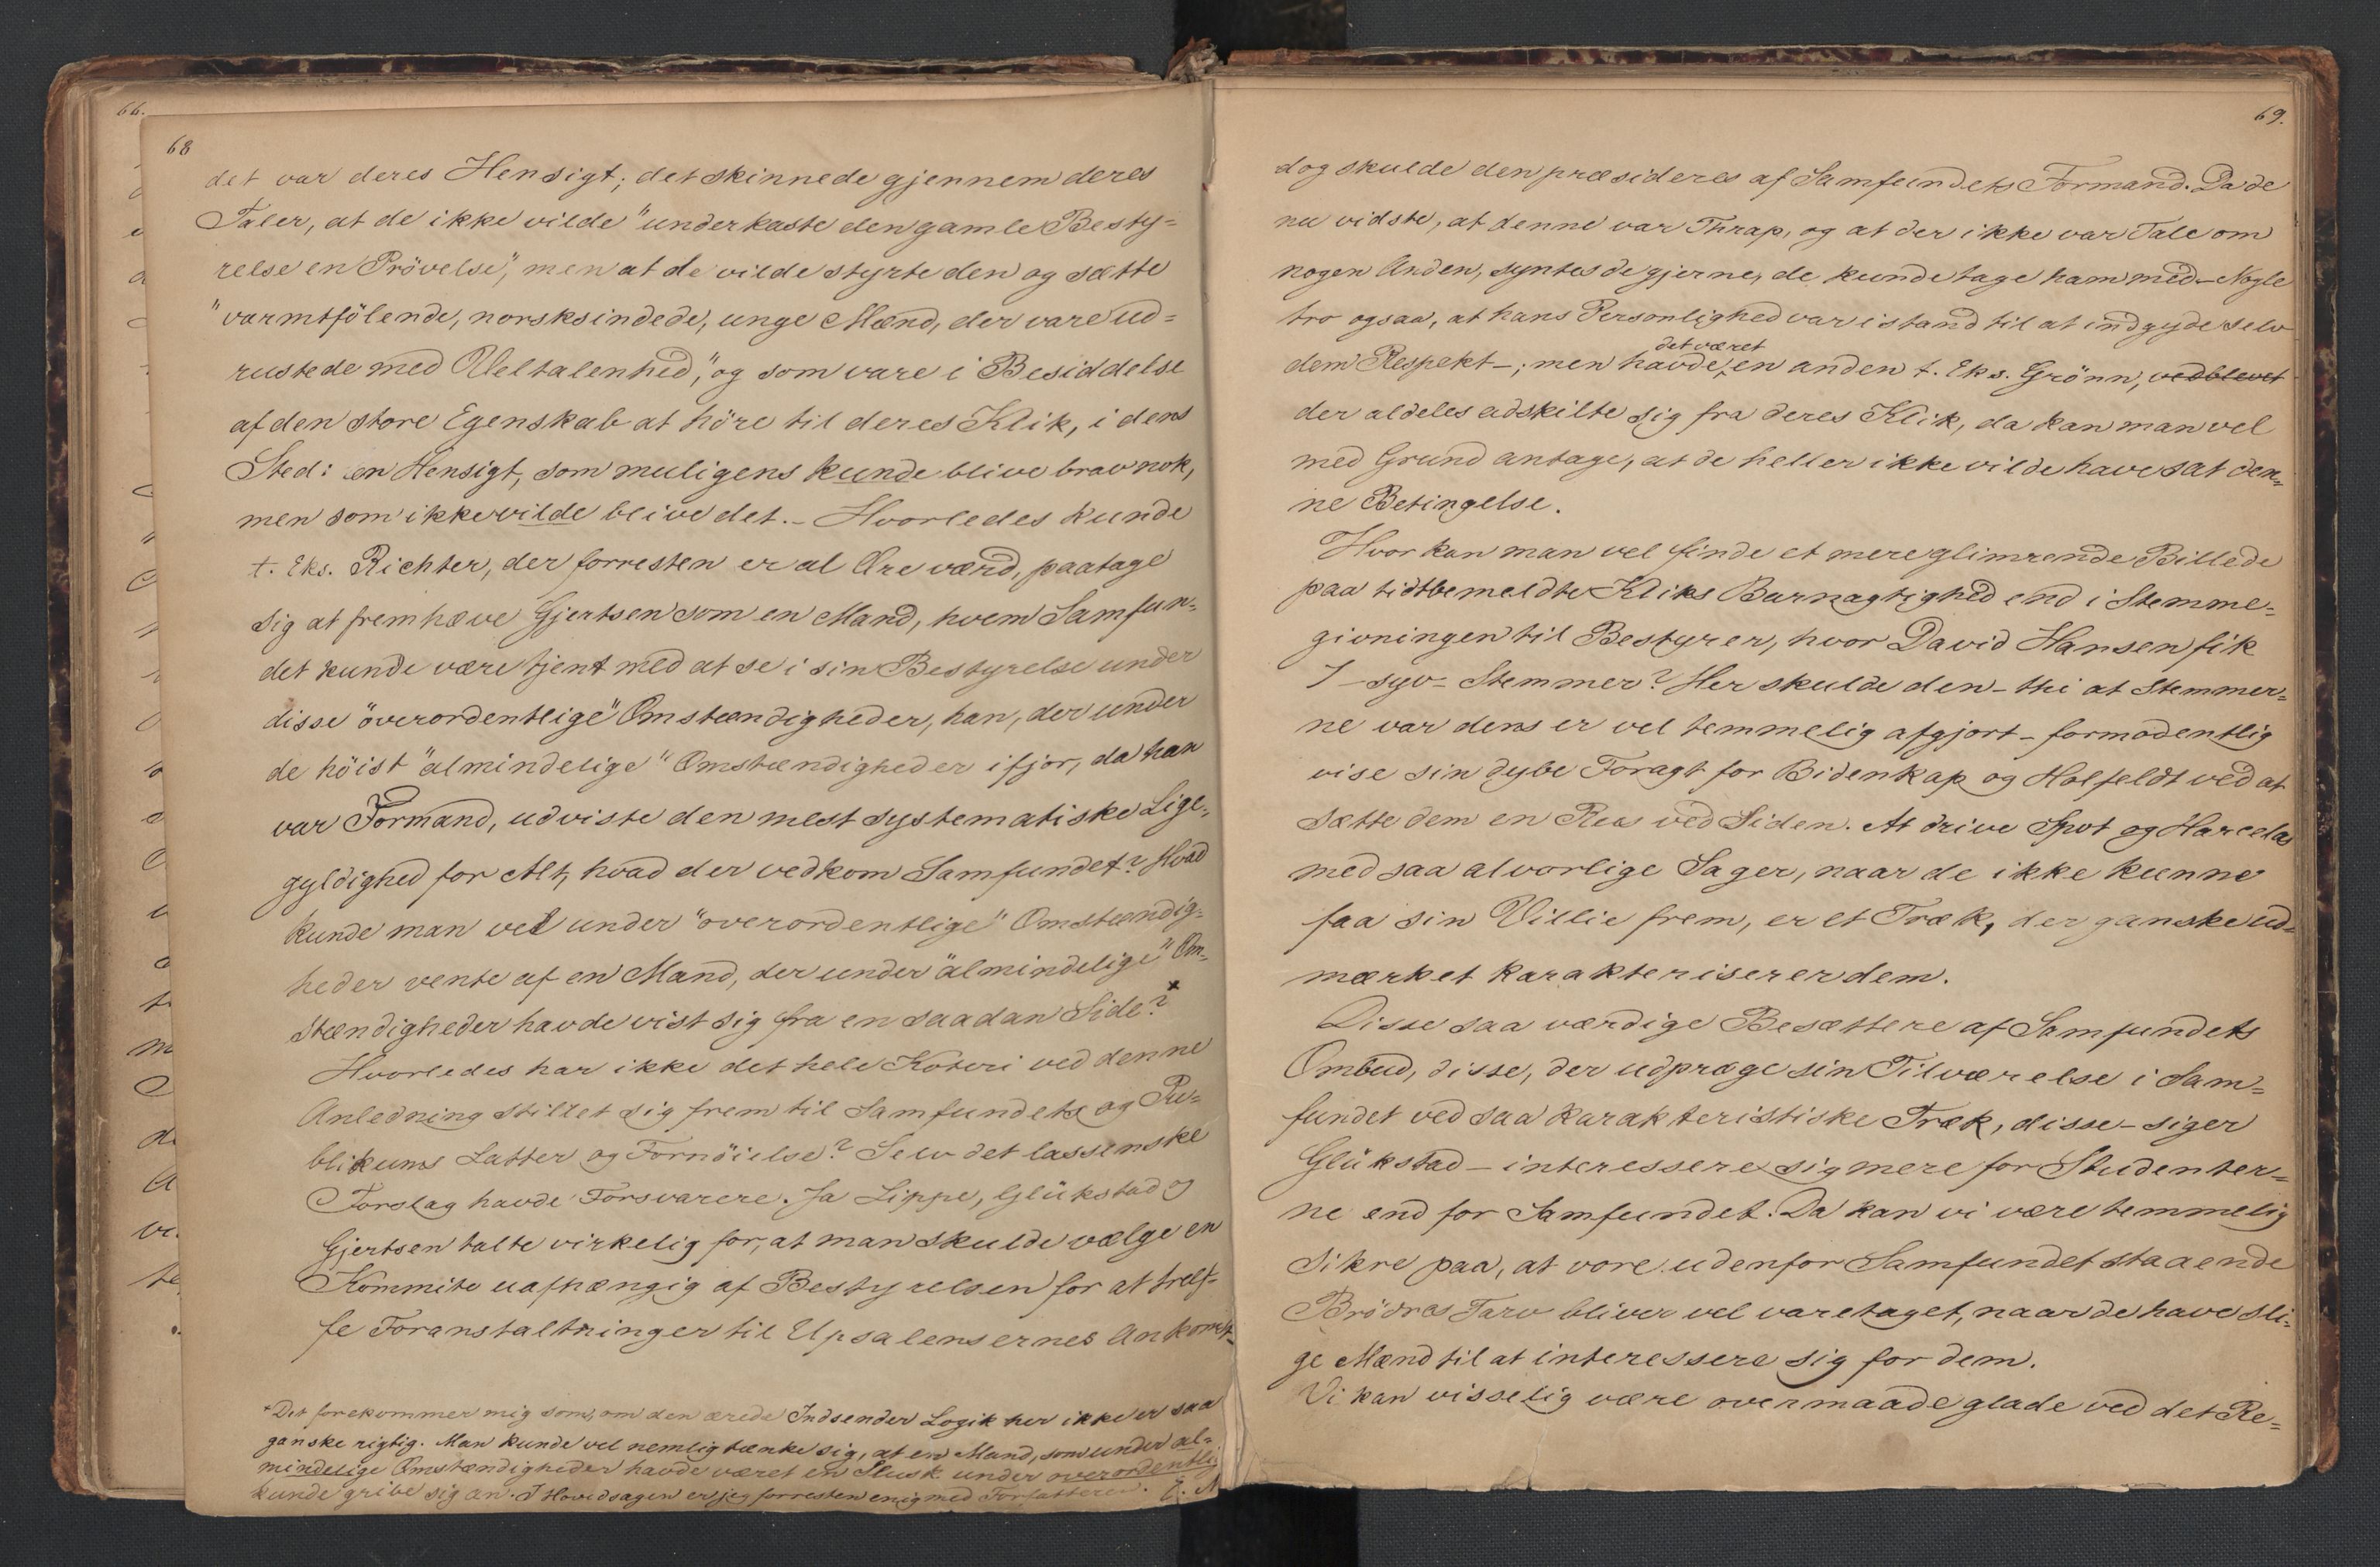 66.
68
det var deres Hensigt; det skinnede gjennem deres
Taler, at de ikke vilde "underkaste den gamle Besty=
relse en Prövelse", men at de vilde styrte den og sætte
"varmtfölende, norsksindede, unge Mænd, der vare ud=
rustede med Veltalenhed," og som vare i Besiddelse
af den store Egenskab at höre til deres Klik, i dens
Sted: en Hensigt, som muligens kunde blive brav nok,
men som ikke vilde blive det. – Hvorledes kunde
t. Eks. Richter, der forresten er al Ære værd, paatage
sig at fremhæve Gjertsen som en Mand, hvem Samfun=
det kunde være tjent med at se i sin Bestyrelse under
disse "overordentlige" Omstændigheder, han, der under
de höist "almindelige" Omstændigheder ifjor, da han
var Formand, udviste den mest systematiske Lige=
gyldighed for Alt, hvad der vedkom Samfundet? Hvad
kunde man vel under "overordentlige" Omstændig=
heder vente af en Mand, der under "almindelige" Om=
stændigheder havde vist sig fra en saadan Side? *
Hvorledes har ikke det hele Koteri ved denne
Anledning stillet sig frem til Samfundets og Pu=
blikums Latter og Fornöielse? Selv det lassenske
Forslag havde Forsvarere. Ja Lippe, Glükstad og
Gjertsen talte virkelig for, at man skulde vælge en
Kommite uafhængig af Bestyrelsen for at tref=
fe Foranstaltninger til Upsalensernes Ankomst
*Det forekommer mig som, om den ærede Indsender Logik her ikke er saa
ganske rigtig. Man kunde vel nemlig tænke sig, at en Mand, som under al=
mindelige Omstændigheder havde været en Slusk under overordentli
kunde gribe sig an. I Hovedsagen er jeg forresten enig med Forfatteren.
69.
dog skulde den præsideres af Samfundets Formand. Da de
nu vidste, at denne var Thrap, og at der ikke var Tale om
nogen Anden, syntes de gjerne, de kunde tage ham med – Nogle
tro ogsaa, at hans Personlighed var istand til at indgyde selv
dem Respekt –; men havde det været en anden t. Eks. Grönn, vedblevet
der aldeles adskilte sig fra deres Klik, da kan man vel
med Grund antage, at de heller ikke vilde have sat den=
ne Betingelse.
Hvor kan man vel finde et mere glimrende Billede
paa tidtbemeldte Kliks Barnagtighed end i Stemme=
givningen til Bestyrer, hvor David Hansen fik
7 – syv – Stemmer? Her skulde den – thi at Stemmer=
ne var dens er vel temmelig afgjort – formodentlig
vise sin dybe Foragt for Bidenkap og Holfeldt ved at
sætte dem en Rus ved Siden. At drive Spot og Harcelas
med saa alvorlige Sager, naar de ikke kunne
faa sin Villie frem, er et Træk, der ganske ud=
mærket karakteriserer dem.
Disse saa værdige Besættere af Samfundets
Ombud, disse, der udpræge sin Tilværelse i Sam=
fundet ved saa karakteristiske Træk, disse – siger
Glükstad – interessere sig mere for Studenter=
ne end for Samfundet. Da kan vi være temmelig
sikre paa, at vore udenfor Samfundet staaende
Brödres Tarv bliver vel varetaget, naar de have sli=
ge Mænd til at interessere sig for dem.
Vi kan visselig være overmaade glade ved det Re=